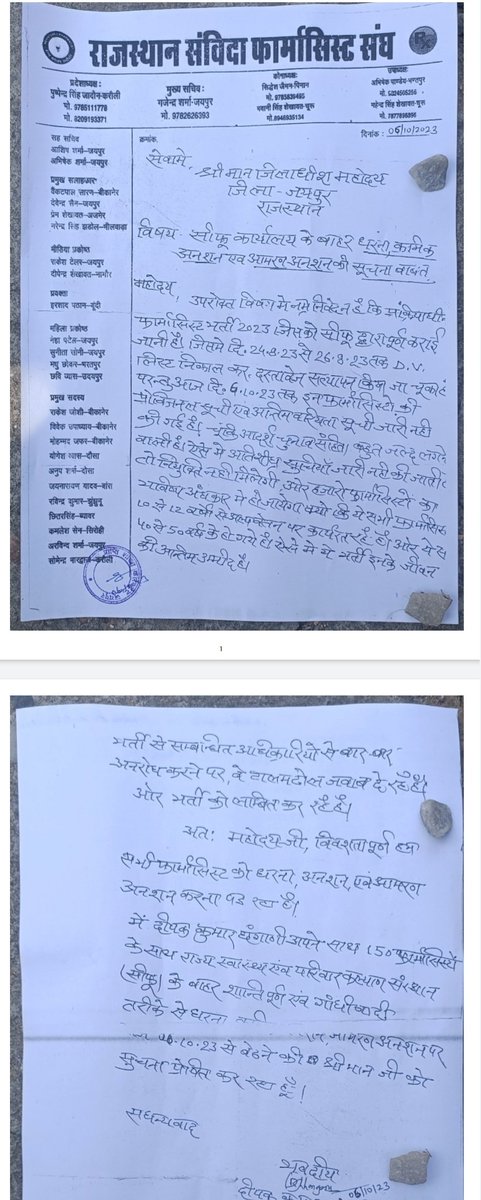 राजस्थान संविदा फार्मासिस्ट संघ
प्रदेशाध्यक्षः
पुष्पेन्द्र सिंह जादौन-करौली
मो. 9785111778
मो. 8209193371
मुख्य सचिवः
गजेन्द्र शर्मा-जयपुर
मो. 9782626393
कोषाध्यक्षः
मो.9785839495
भवानी सिंह शेखावत-चूरू
मो.8946935134
उपाध्यक्षः
अभिषेक पाण्डेय-भरतपुर
मो. 5024505255
महेन्द्र सिंह शेखावत-चूरू
मो. 7877896956
सह सचिव
आशिष शर्मा-जयपुर
अभिषेक शर्मा-जयपुर
प्रमुख सलाहकार
वैंकटपाल सारण-बीकानेर
देवेन्द्र सैन-जयपुर
प्रेम शेखावत-अजमेर
नरेन्द्र सिंह झडोल-भीलवाड़ा
मीडिया प्रकोष्ठ
राकेश टेलर-जयपुर
दीपेन्द्र शेखावत-नागौर
प्रवक्ता
इरशाद पठान-बूंदी
महिला प्रकोष्ठ
नेहा पटेल-जयपुर
सुनीता सोनी-जयपुर
मधु छोकर-भरतपुर
छवि व्यास-उदयपुर
प्रमुख सदस्य
राकेश जोशी-बीकानेर
विवेक उपाध्याय-बीकानेर
मोहम्मद जफर-बीकानेर
योगेश व्यास-दौसा
अनुप शर्मा-दौसा
जयनारायण यादव-बांरा
रविन्द्र कुमार-झुंझुनू
छितरसिंह-ब्यावर
कमलेश सेन-सिरोही
अरविन्द शर्मा-जयपुर
सोमेन्द्र भारद्वाज-करौली
क्रमांक
दिनांक : 06/10/2023
सेवामे,
श्रीमान जिलाधीश महोदय
जिला - जयपुर
राजस्थान
विषय :- सीफू कार्यालय के बाहर धरना, क्रमिक
अनशन एव आमरण अनशन की सूचना बाबत्
महोदय,
उपरोक्त विषय मे नम्र निवेदन है कि प्रक्रियाधीन
फार्मासिस्ट भर्ती 2023 जिसको सीफू द्वारा पूर्ण कराई
जानी है। जिसमे दि. 24.8.23 से 26.8.23 तक D.V.
लिस्ट निकाल कर, दस्तावेज सत्यापन किया जा चूका है
परन्तु आज दि. 6.10.23 तक इन फार्मासिस्टो की
प्रोविजनल सूची एव अन्तिम वरियता सूची जारी नही
की गई है। चूंकि आदर्श चुनाव संहिता बहुत जल्द लगने
वाली है। ऐसे मे अतिशीघ्र सूचियाँ जारी नही की जाती
तो नियुक्ति नही मिलेगी और हजारो फार्मासिस्टो का
भविष्य अंधकार मे हो जायेगा क्यो कि ये सभी फार्मासिस्ट
10 से 12 वर्षो से अल्पवेतन पर कार्यरत रहे है। और ये सब
40 से 50 वर्ष के हो गये है। ऐसे मे ये भर्ती इनके जीवन
की अन्तिम उम्मीद है।
1
भर्ती से सम्बन्धित अधिकारियो से बार-बार
अनरोध करने पर, वे टालमटोल जवाब दे रहे है।
और भर्ती को लम्बित कर रहे है।
अतः महोदय जी, विवशता पूर्ण हम
सभी फार्मासिस्ट को धरना, अनशन, एवं आमरण
अनशन करना पड रहा है।
में दीपक कुमार धंगाणी अपने साथ 150 फार्मासिस्टो
के साथ राज्य स्वास्थ्य एवं परिवार कल्याण संस्थान
(सीफू) के बाहर शान्ति पूर्ण एवं गाँधीवादी
तरीके से धरना
आमरण अनशन पर
06.10.23 से बेठने की श्री मान जी को
सूचना प्रेषित कर रहा हूँ।
सधन्यवाद
भवदीय
06/10/23
दीपक